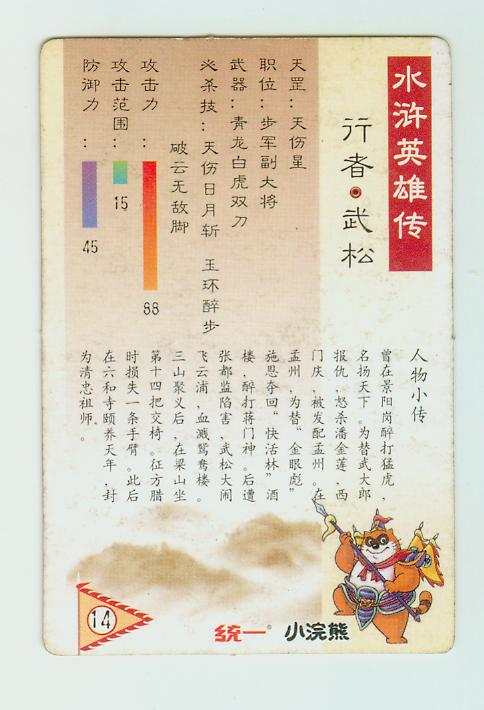 水浒英雄传
行者·武松
天罡：天伤星
职位：步军副大将
武器：青龙白虎双刀
必杀技：天伤日月斩 玉环醉步
破云无敌脚
攻击力：
88
攻击范围：
15
防御力：
45
人物小传
曾在景阳岗醉打猛虎，
名扬天下。为替武大郎
报仇，怒杀潘金莲，西
门庆，被发配孟州。在
孟州，为替“金眼彪”
施恩夺回“快活林”酒
楼，醉打蒋门神。后遭
张都监陷害，武松大闹
飞云浦，血溅鸳鸯楼。
三山聚义后，在梁山坐
第十四把交椅。征方腊
时损失一条手臂。此后
在六和寺颐养天年，封
为清忠祖师。
14
统一® 小浣熊